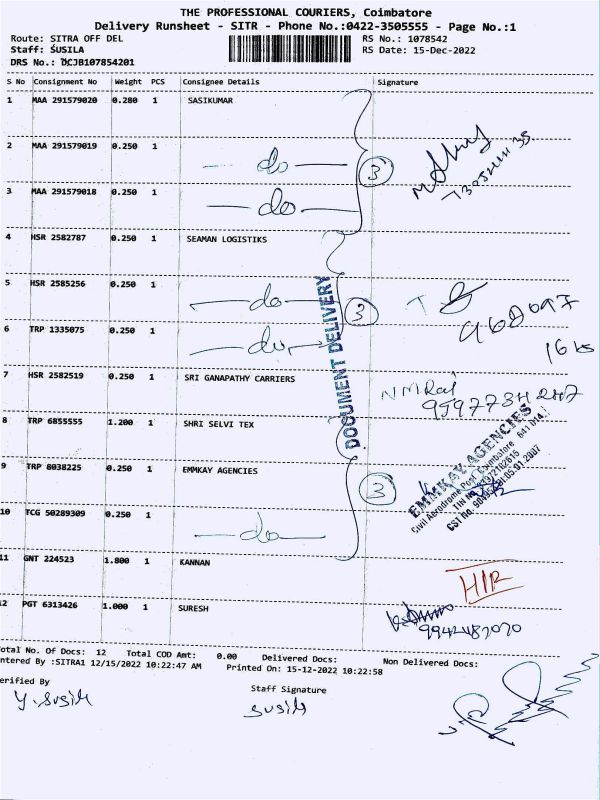 THE PROFESSIONAL COURIERS, Coimbatore
Delivery Runsheet - SITR - Phone No.:0422-3505555 - Page No.:1
Route: SITRA OFF DEL
RS No.: 1078542
Staff: SUSILA
RS Date: 15-Dec-2022
DRS No.: DCJB107854201
S No Consignment No Weight PCS Consignee Details Signature
1 MAA 291579020 0.280 1 SASIKUMAR
2 MAA 291579019 0.250 1 do 3
3 MAA 291579018 0.250 1 do
4 HSR 2582787 0.250 1 SEAMAN LOGISTIKS
5 HSR 2585256 0.250 1 do 3
6 TRP 1335075 0.250 1 do
DOCUMENT DELIVERY
7 HSR 2582519 0.250 1 SRI GANAPATHY CARRIERS
NMRaj
8 TRP 6855555 1.200 1 SHRI SELVI TEX
9 TRP 8038225 0.250 1 EMMKAY AGENCIES 3
EMMKAY AGENCIES
Civil Aerodrome Post, Coimbatore
10 TCG 50289309 0.250 1 do
11 GNT 224523 1.800 1 KANNAN
12 PGT 6313426 1.000 1 SURESH
9942482020
otal No. Of Docs: 12 Total COD Amt: 0.00 Delivered Docs: Non Delivered Docs:
ntered By :SITRA1 12/15/2022 10:22:47 AM Printed On: 15-12-2022 10:22:58
erified By Staff Signature
Y. Susila susila